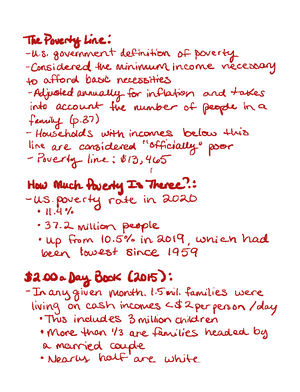 The Poverty Line:
-U.S. government definition of poverty
-Considered the minimum income necessary
to afford basic necessities
-Adjusted annually for inflation and takes
into account the number of people in a
family (p.37)
- Households with incomes below this
line are considered "officially" poor
- Poverty line: $13,465
How Much Poverty Is There?:
-U.S. poverty rate in 2020
• 11.4%
• 37.2 million people
• up from 10.5% in 2019, which had
been lowest since 1959
$2.00 a Day Book (2015):
-In any given month. 1.5 mil. families were
living on cash incomes <$2 per person/day
• This includes 3 million children
• More than 1/3 are families headed by
a married couple
• Nearly half are white